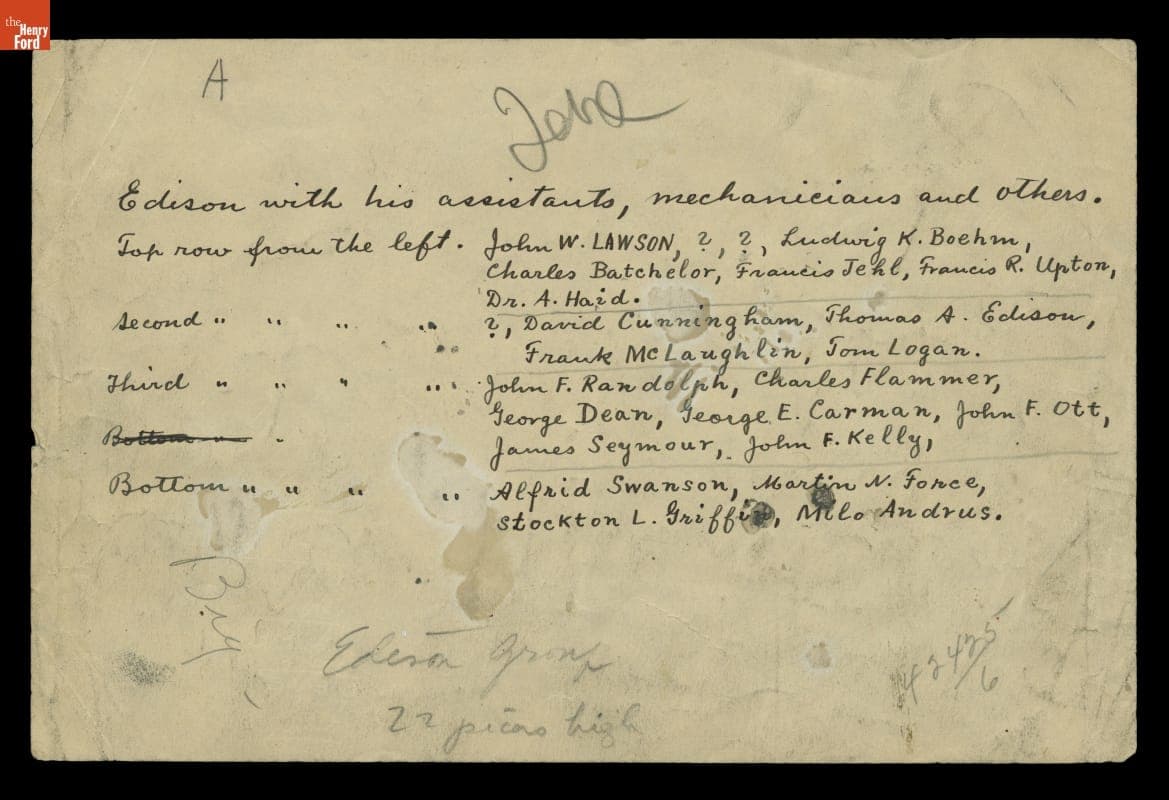 the
Henry
Ford
A
Edison with his assistants, mechanicians and others.
Top row from the left. John W. LAWSON, ?, ?, Ludwig K. Boehm,
Charles Batchelor, Francis Jehl, Francis R. Upton,
Dr. A. Haid.
Second " " " " ?, David Cunningham, Thomas A. Edison,
Frank McLaughlin, Tom Logan.
Third " " " " John F. Randolph, Charles Flammer,
George Dean, George E. Carman, John F. Ott,
Bottom " "
James Seymour, John F. Kelly,
Bottom " " " " Alfrid Swanson, Martin N. Force,
Stockton L. Griffin, Milo Andrus.
Edison Group
22 picas high
42425/6